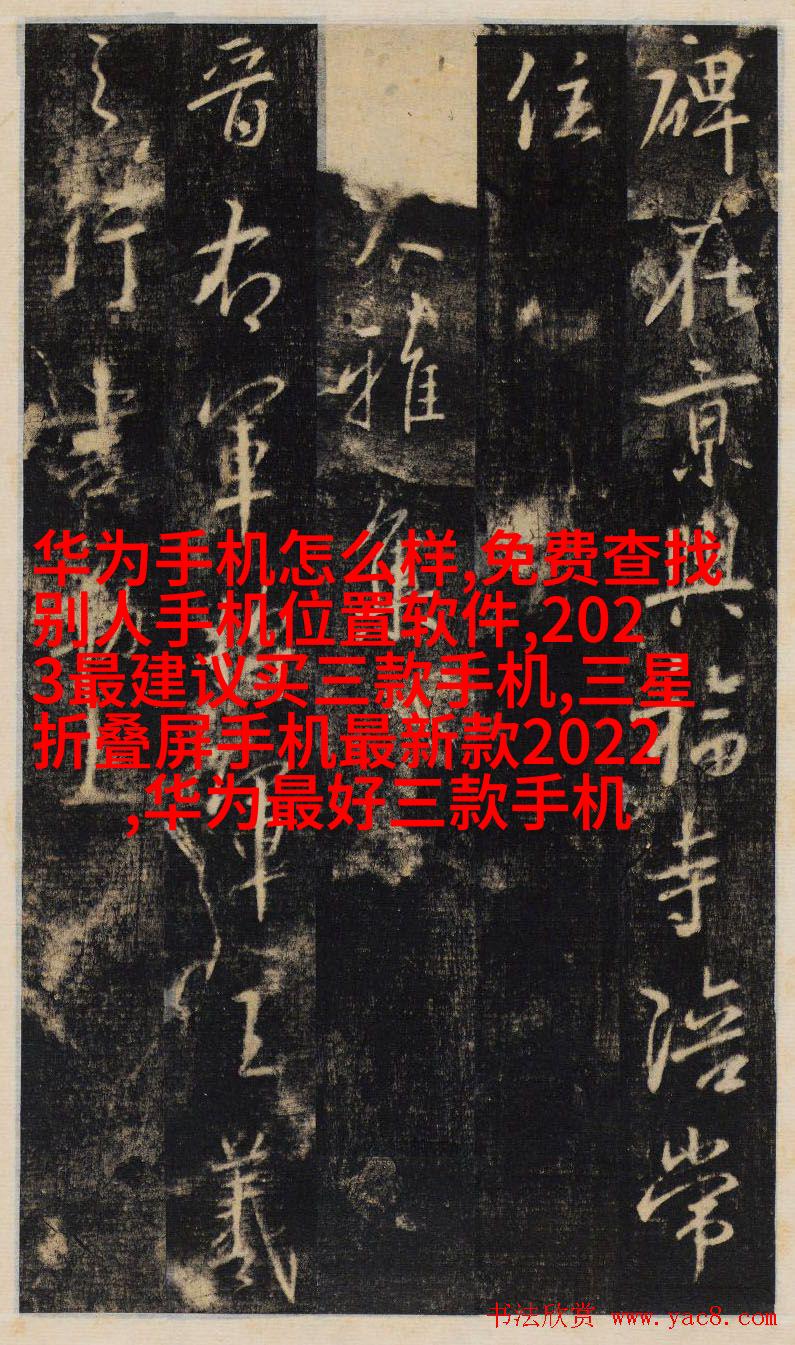 碑在京興福寺陪常
住
雅
晋右軍將軍王羲
之行書
华为手机怎么样,免费查找
别人手机位置软件,202
3最建议买三款手机,三星
折叠屏手机最新款2022
,华为最好三款手机
书法欣赏 www.yac8.com